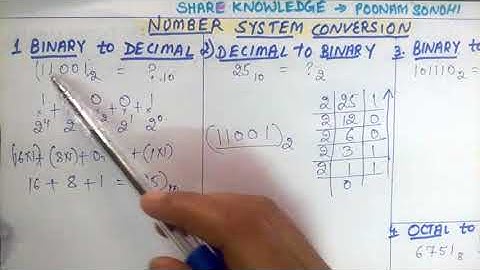 SHARE KNOWLEDGE → POONAM SONDHI
NUMBER SYSTEM CONVERSION
1 BINARY to DECIMAL
(11001)₂ = ?₁₀
1 + 0 + 0 + 1
2⁴ 2¹ 2⁰
(16x1) + (8x1) + 0 + (1x1)
16 + 8 + 1 =
2) DECIMAL to BINARY
25₁₀ = ?₂
(11001)₂
2 25 1
2 12 0
2 6 0
2 3 1
2 1 1
0
3. BINARY to
101110₂ =
4 OCTAL to
6751₈